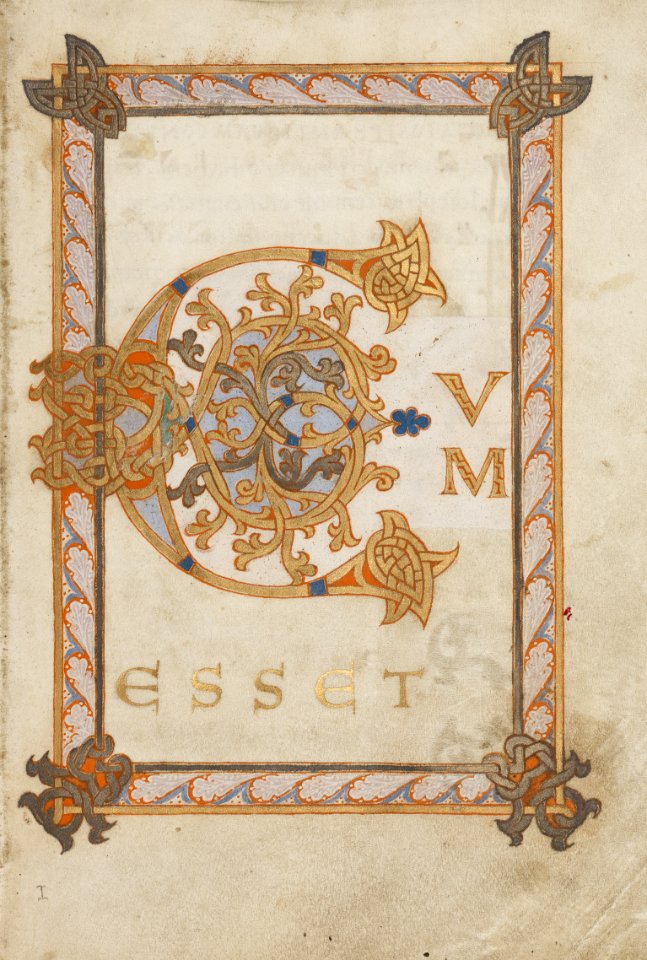 C
V
M
ESSET
I